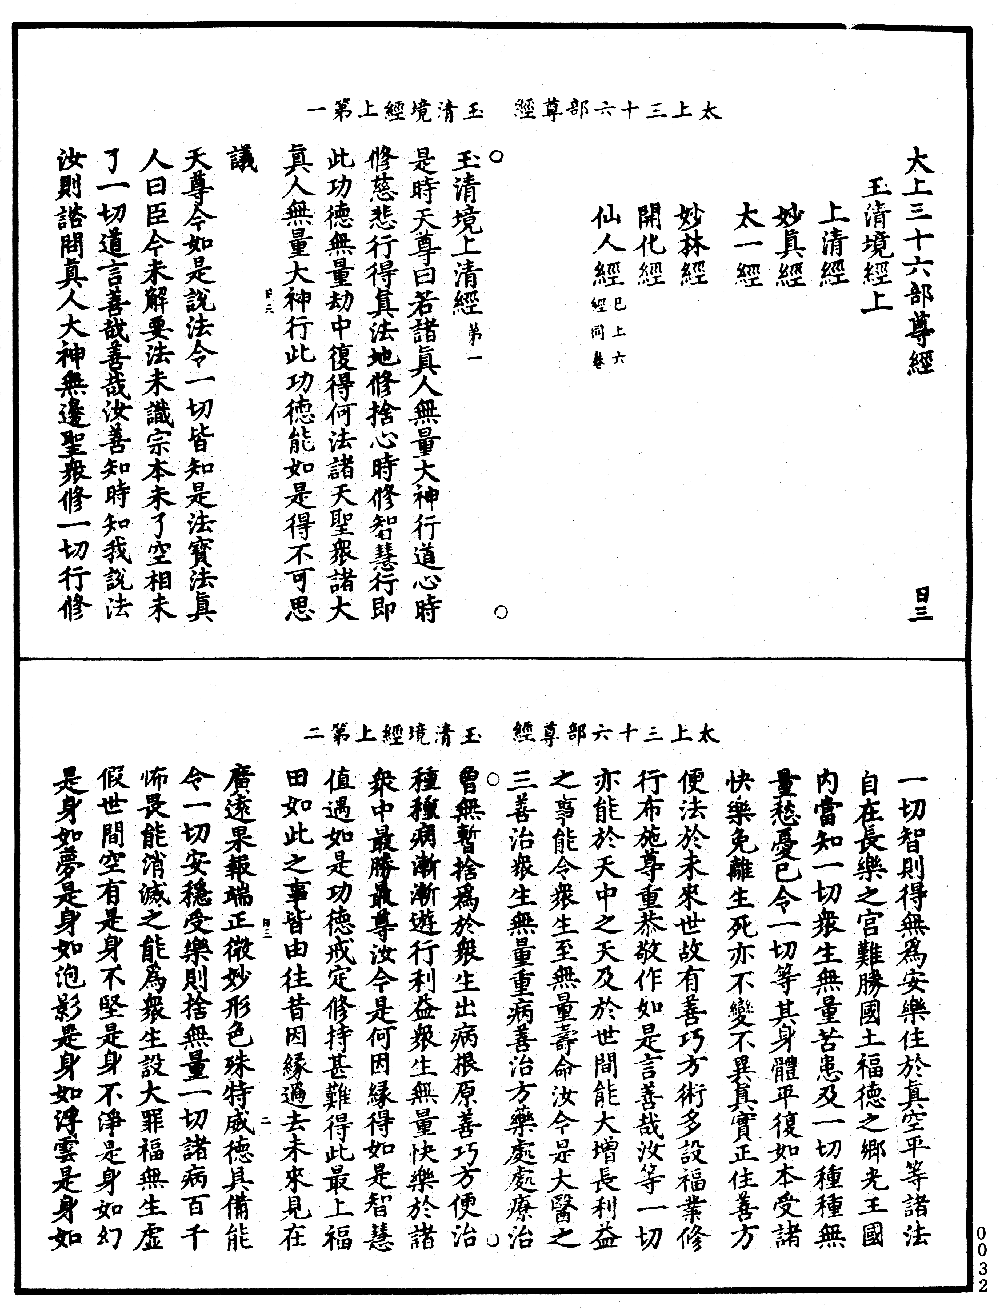 太上三十六部尊經　玉清境經上第一
太上三十六部尊經　日三
玉清境經上
上清經
妙真經
太一經
妙林經
開化經
仙人經已上六經同卷
玉清境上清經第一
是時天尊曰若諸真人無量大神行道心時
修慈悲行得真法地修捨心時修智慧行即
此功德無量劫中復得何法諸天聖衆諸大
真人無量大神行此功德能如是得不可思
議
天尊今如是說法令一切皆知是法寶法真
人曰臣今未解要法未識宗本未了空相未
了一切道言善哉善哉汝善知時知我說法
汝則諮問真人大神無邊聖衆修一切行修
日三
太上三十六部尊經　玉清境經上第二
一切智則得無爲安樂住於真空平等諸法
自在長樂之宮難勝國土福德之鄉光王國
內當知一切衆生無量苦患及一切種種無
量愁憂已令一切等其身體平復如本受諸
快樂免離生死亦不變不異真實正住善方
便法於未來世故有善巧方術多設福業修
行布施尊重恭敬作如是言善哉汝等一切
亦能於天中之天及於世間能大增長利益
之事能令衆生至無量壽命汝今是大醫之
三善治衆生無量重病善治方藥處處療治
曾無暫捨爲於衆生出病根原善巧方便治
種種病漸漸遊行利益衆生無量快樂於諸
衆中最勝最尊汝今是何因緣得如是智慧
值遇如是功德戒定修持甚難得此最上福
田如此之事皆由往昔因緣過去未來見在
廣遠果報端正微妙形色殊特威德具備能
令一切安穩受樂則捨無量一切諸病百千
怖畏能消滅之能爲衆生設大罪福無生虛
假世間空有是身不堅是身不淨是身如幻
是身如夢是身如泡影是身如浮雲是身如
日三　二
0032